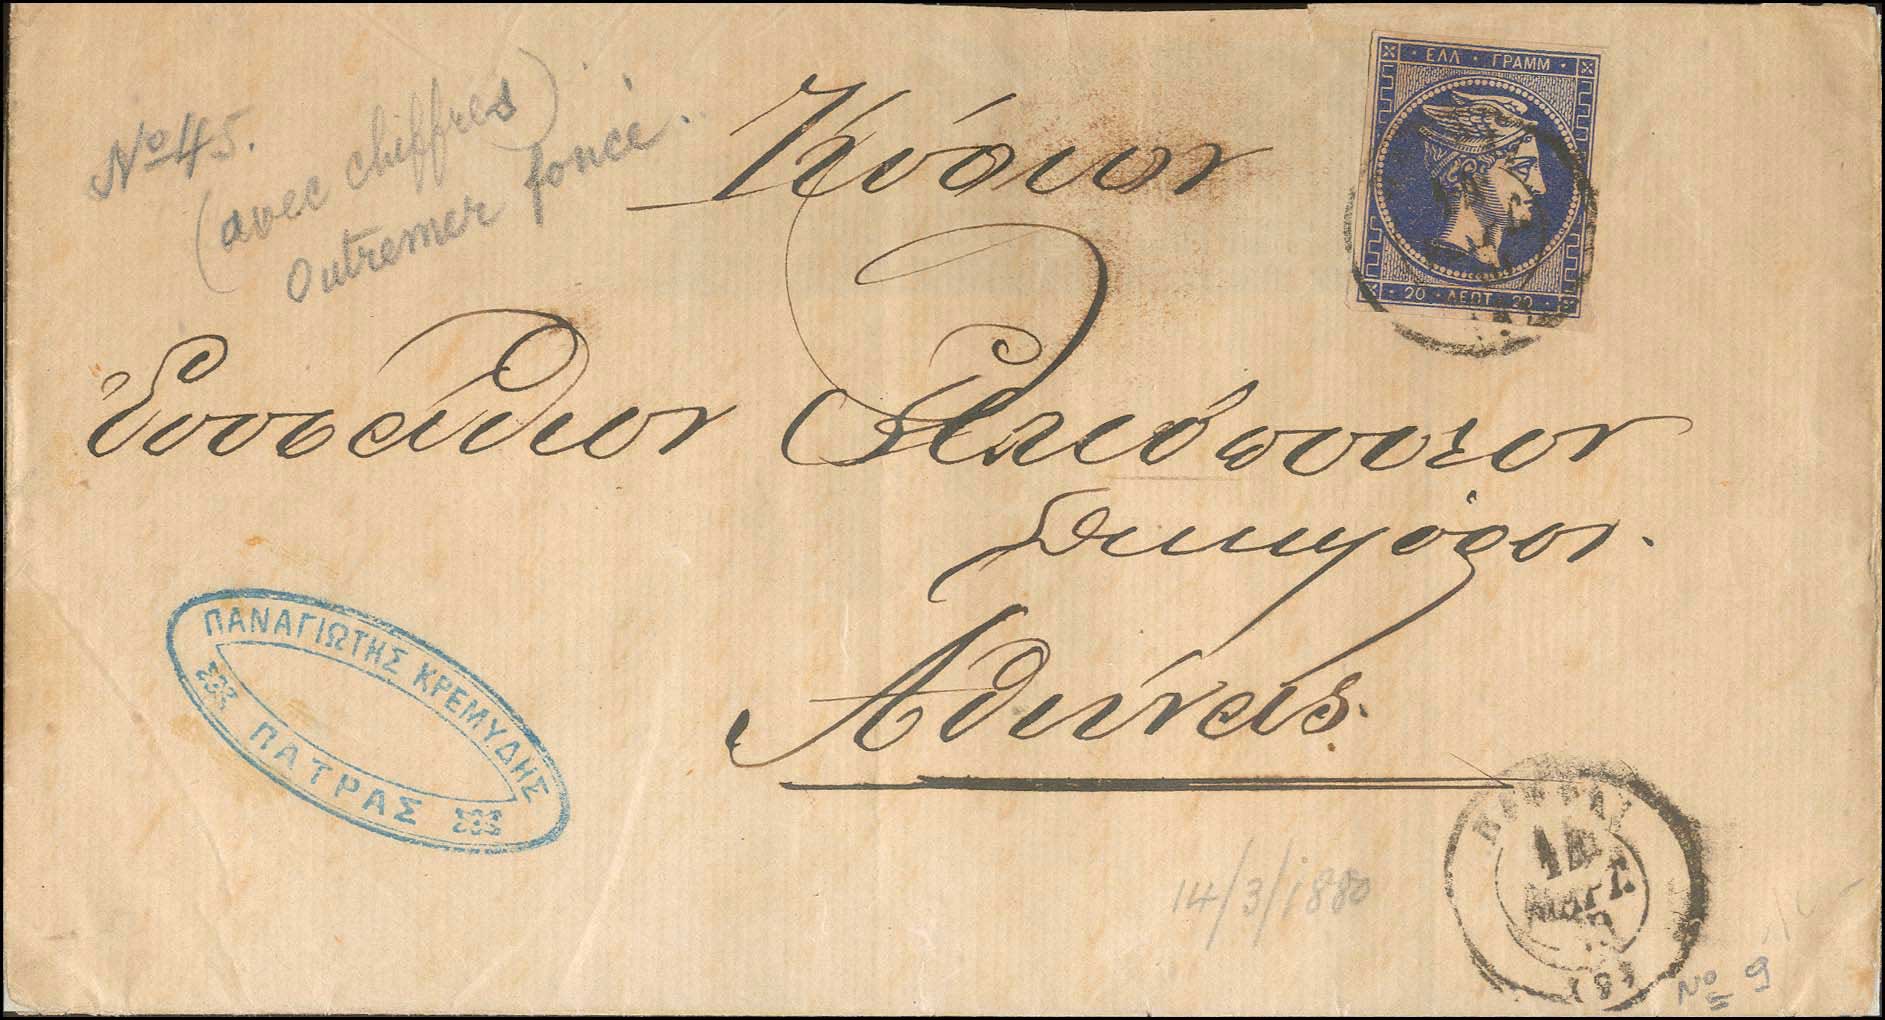 Νο 45.
(avec chiffres)
Outremer foncé.
ΕΛΛ · ΓΡΑΜΜ ·
20 · ΛΕΠΤ · 20 ·
Κύριον
Ευστάθιον
Δικηγόρον.
Αθήνας.
ΠΑΝΑΓΙΩΤΗΣ ΚΡΕΜΥΔΗΣ
ΠΑΤΡΑΣ
14/3/1880
14
ΜΑΡΤ
No 5 9